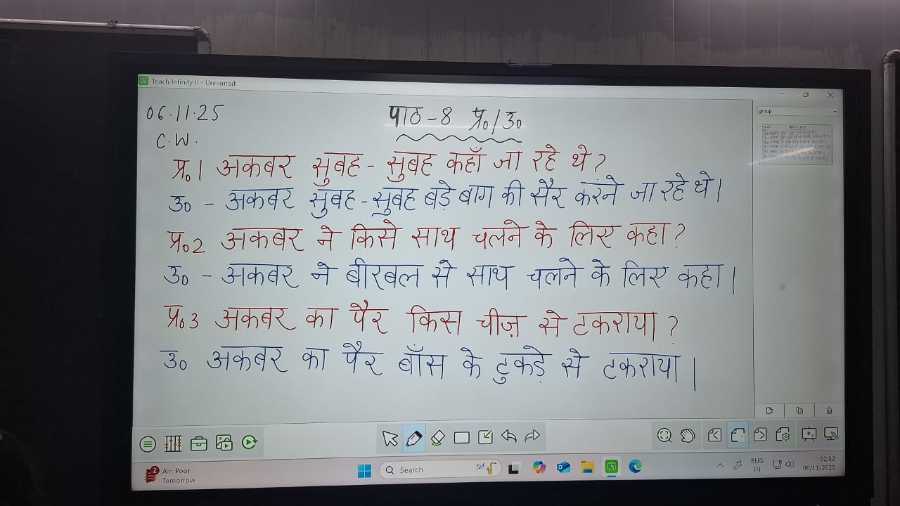 Teach Infinity
06.11.25
पाठ-8 प्र०/उ०
C.W.
प्र०1 अकबर सुबह-सुबह कहाँ जा रहे थे?
उ० - अकबर सुबह-सुबह बड़े बाग की सैर करने जा रहे थे।
प्र०2 अकबर ने किसे साथ चलने के लिए कहा?
उ० - अकबर ने बीरबल से साथ चलने के लिए कहा।
प्र०3 अकबर का पैर किस चीज़ से टकराया?
उ० अकबर का पैर बाँस के टुकड़े से टकराया।
Air: Poor
Tomorrow
Search